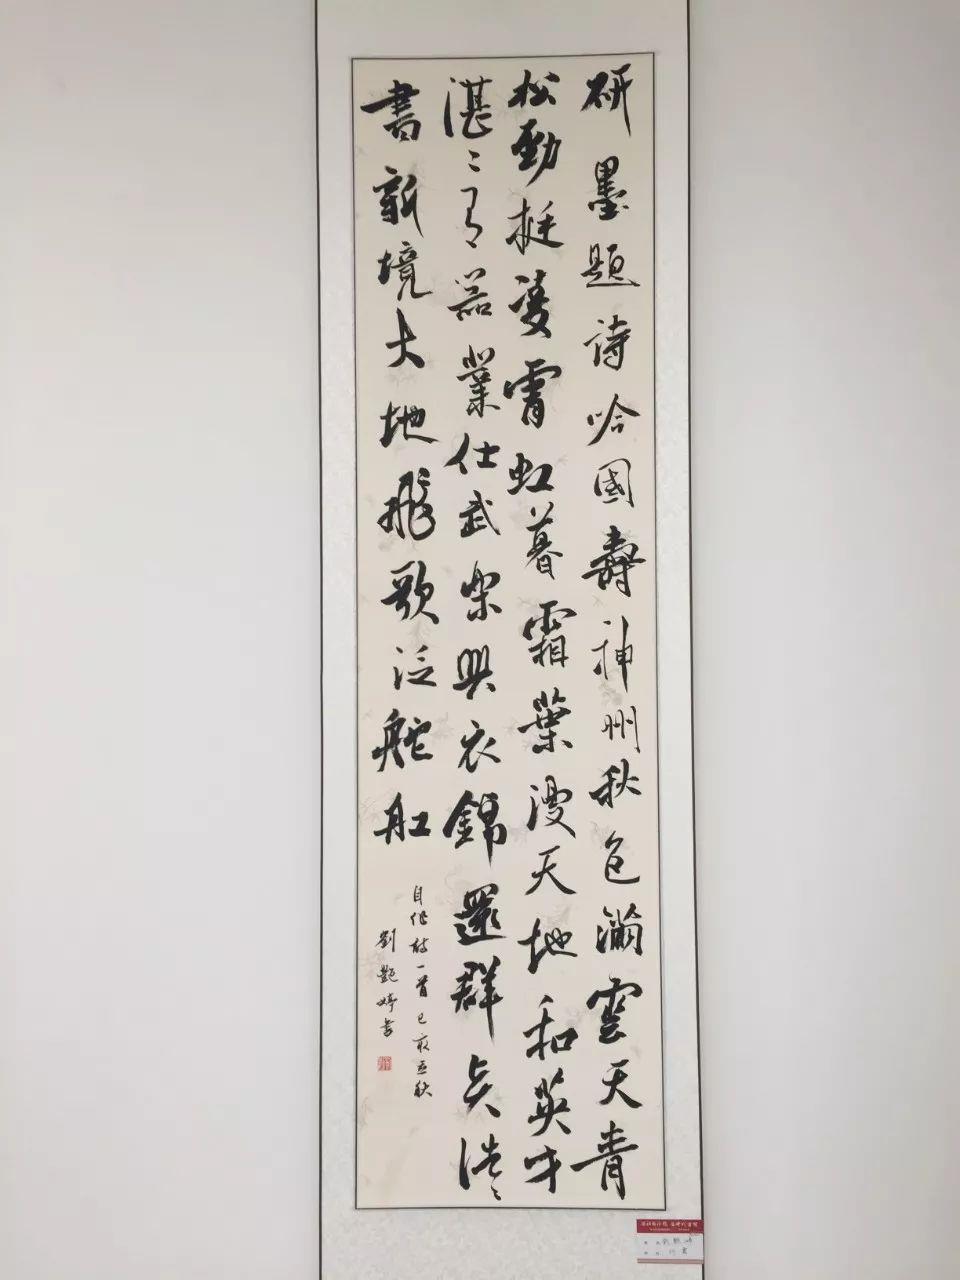 研墨題詩吟國壽神州秋色滿雲天青
松勁挺凌霄虹暮霜葉漫天地和英才
湛〻有器業仕武樂興衣錦還群浩〻
書新境大地飛歌泛舵舡
自作詩一首己亥孟秋
劉艷婷書